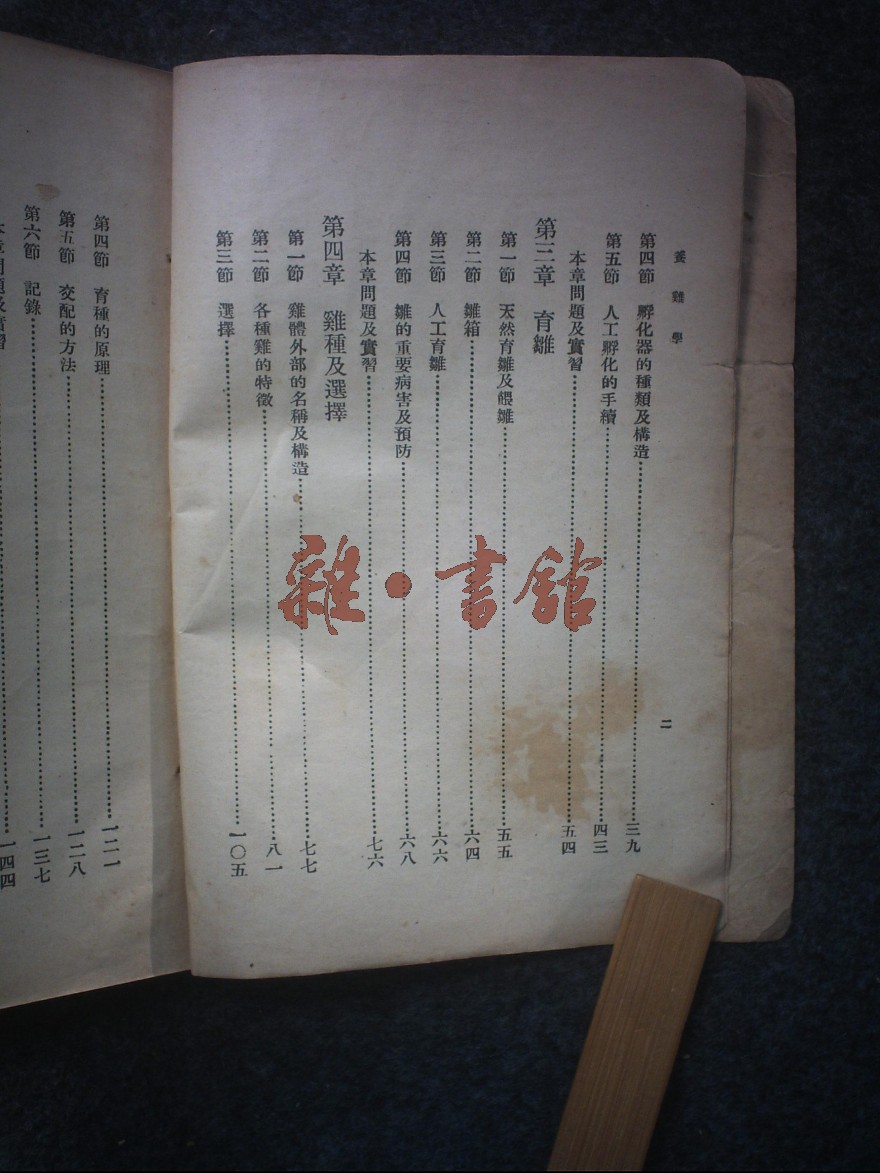 養雞學
二
第四節 孵化器的種類及構造……三九
第五節 人工孵化的手續……四三
本章問題及實習……五四
第三章 育雛
第一節 天然育雛及餵雛……五五
第二節 雛箱……六四
第三節 人工育雛……六六
第四節 雛的重要病害及預防……六八
本章問題及實習……七六
第四章 雞種及選擇
第一節 雞體外部的名稱及構造……七七
第二節 各種雞的特徵……八一
第三節 選擇……一〇五
第四節 育種的原理……一二一
第五節 交配的方法……一二八
第六節 記錄……一三七
本章問題及實習……一四四
雜·書館